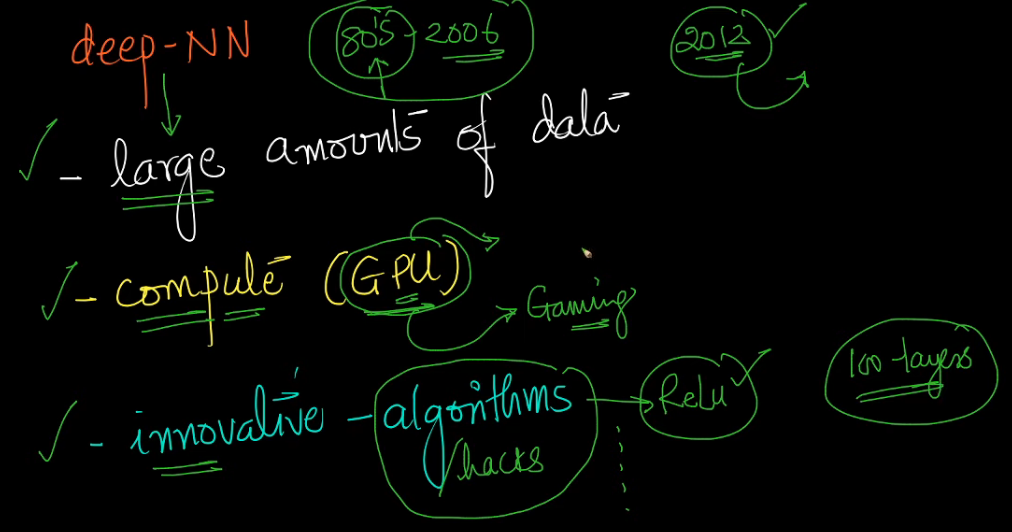 deep-NN 80's - 2006 2012
- large amounts of data
- compute (GPU)
Gaming
- innovative - algorithms Relu 100 layers
/hacks